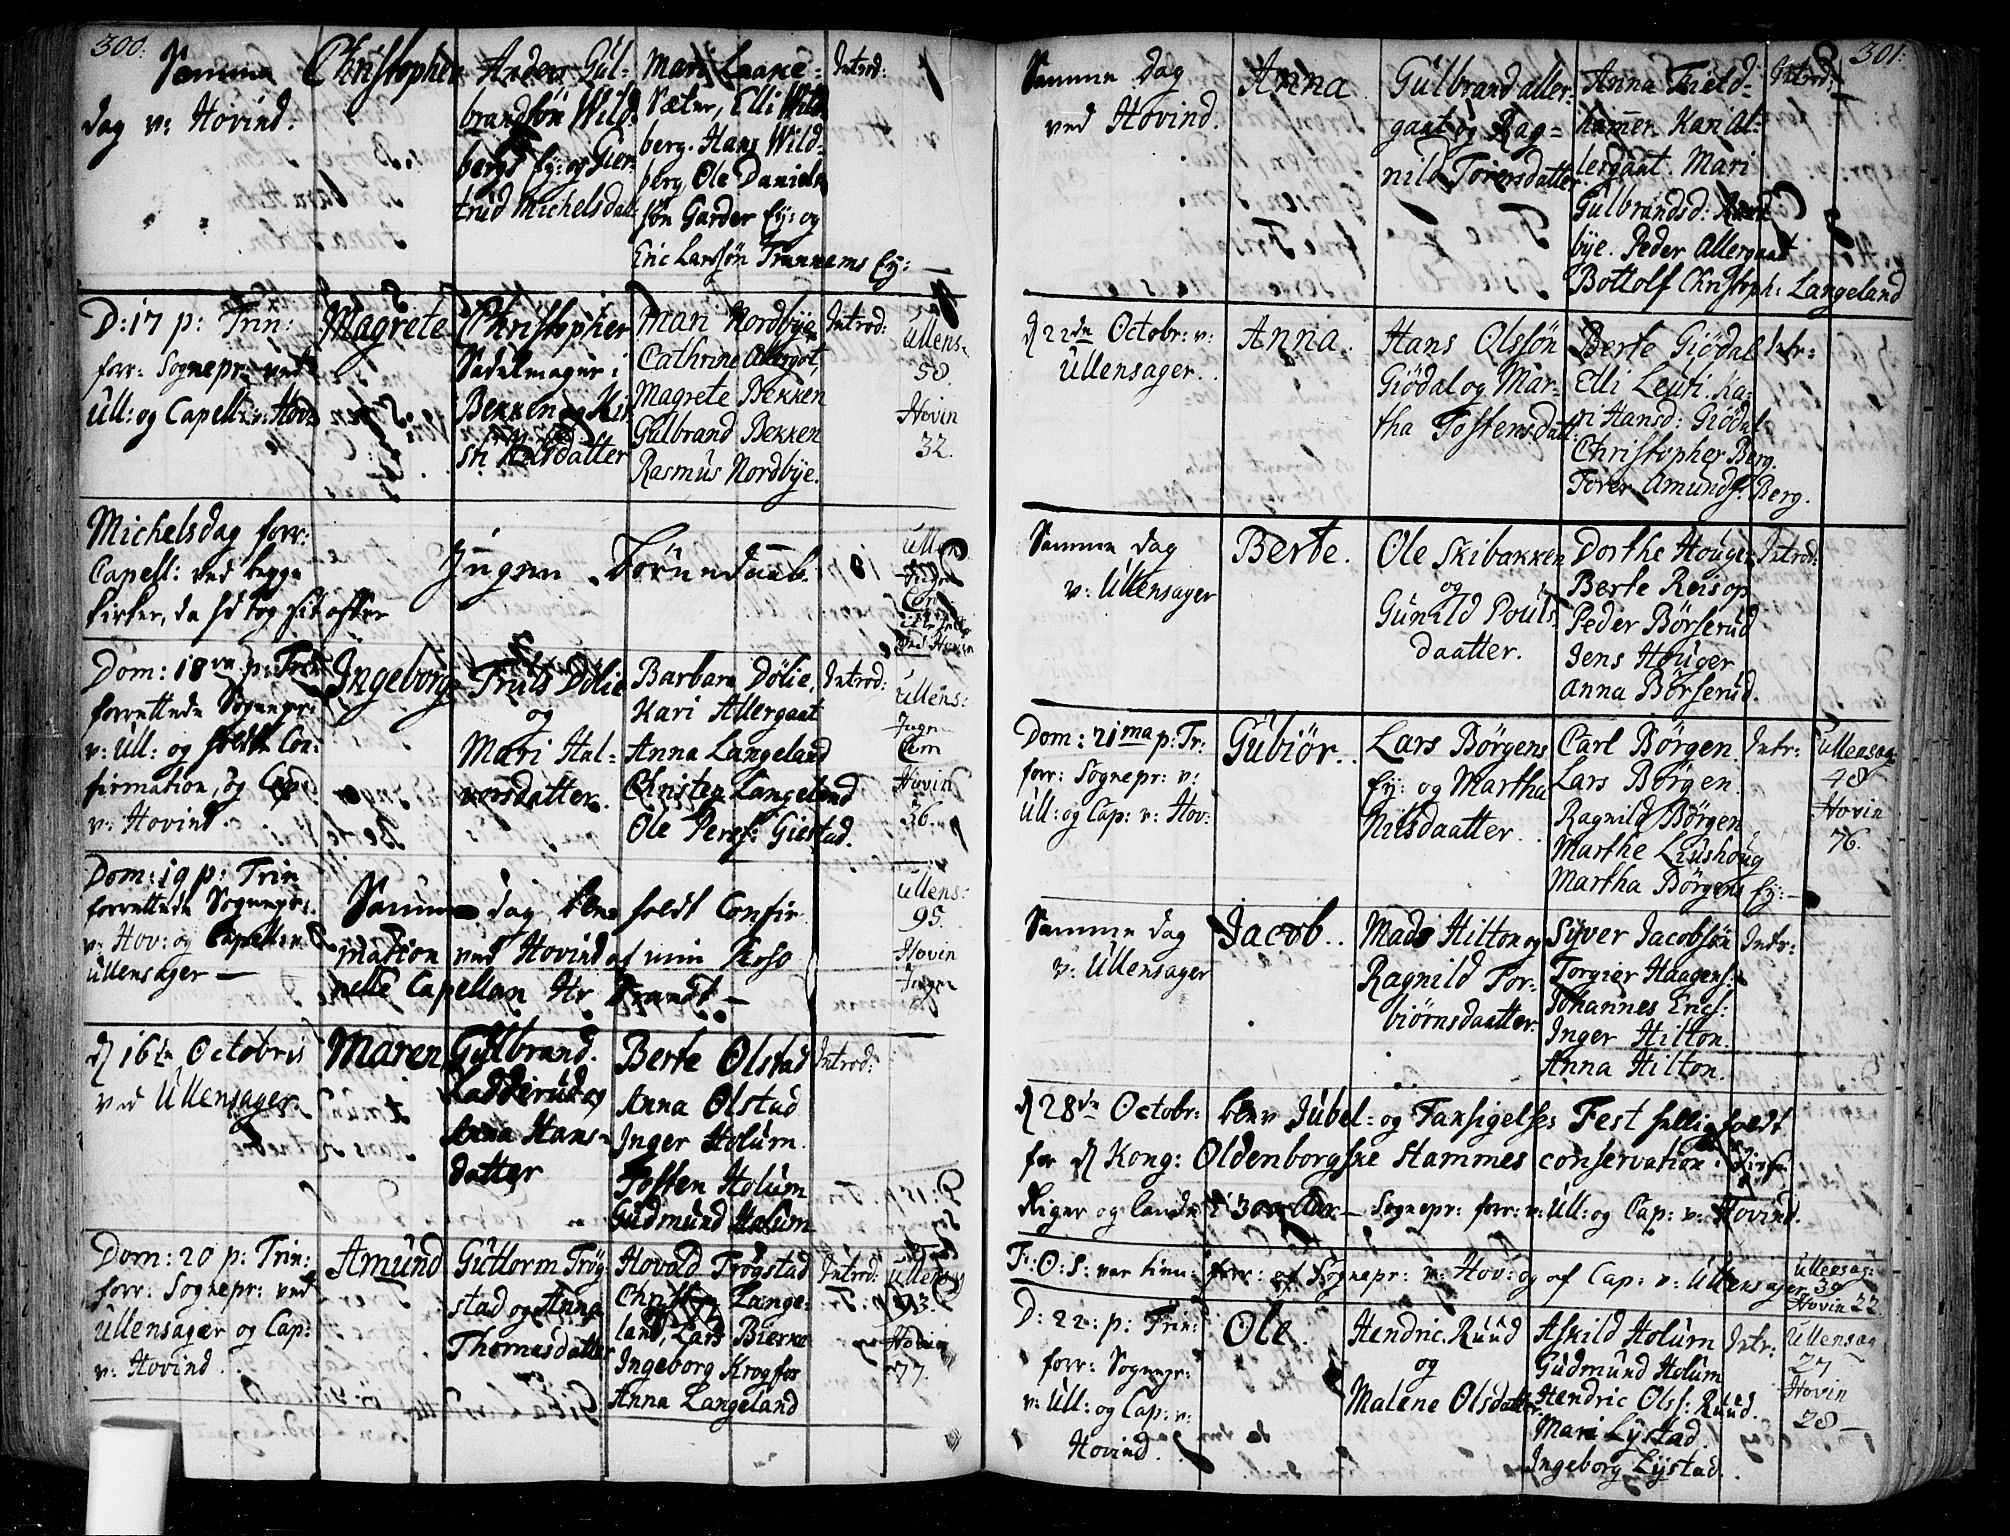 300.
Samme
dag v: Hovind.
Christopher
Anders Gül-
brandsön Wild-
bergs Ey: og Gier-
trud Michelsdat:
Mari Laake-
Sæter, Elli Wild-
berg. Hans Wild-
berg, Ole Daniels
sön Garder Ey: og
Eric Larssön Trannems Ey:
Introd:
D: 17 p: Trin:
forr: Sognepr: ved
Ull: og Capell: v: Hov:
Magrete
Christopher
Sadelmager i
Bekken og Kir
sti Nilsdatter
Mari Nordbÿe
Cathrine Allergot,
Magrete Bekken
Gülbrand Bekken
Rasmus Nordbÿe.
Introd:
Ullens.
58.
Hovin
32.
Michelsdag forr:
Capell: ved begge
kirker, da hd tog sit offer
Ingen
Ullen
Ingen
Com
ved Hovin
Dom: 18de p: Trin
forrettede Sognepr:
v: Ull: og holdt Con-
firmation, og Cap
v: Hovind.
Ingeborg
Truls Dölie
og
Mari Hal-
vorsdatter.
Barbara Dölie,
Kari Allergaat
Anna Langeland
Christen Langeland
Ole Pers: Giestad.
Introd:
Ullens:
Ingen
Com
Hovin
36.
Dom: 19 p: Trin
forrettede Sognepr:
v: Hov: og Capellan
Ullensager —
Samme dag blev holdt Confir
mation ved Hovind af min Perso
nelle Capellan Hr Brandt —
Ullens:
95.
Hovin
Ingen
d 16de Octobris
ved Ullensager
Maren
Gülbrand
Ladderud og
Anna Hans-
datter
Berte Olstad
Anna Olstad
Inger Holüm.
Tosten Holüm
Güdmund Holüm
Introd:
Dom: 20 p: Trin:
forr: Sognepr: ved
Ullensager og Cap:
v: Hovind.
Amünd
Güttorm Trög
stad og Anna
Thomasdatter
Hovald Trögstad
Christen Lange-
land, Lars Bierke
Ingeborg Krogfos
Anna Langeland
Introd:
Ullens
Hovin
77.
301.
Samme dag
ved Hovind.
Anna
Gülbrand aller-
gaat og Rag-
nild Torersdatter
Anna Field-
hammer. Kari Al-
lergaat. Mari
Gülbrandsd: Rand
bÿe. Peder Allergaat
Bottolf Christoph: Langeland
Introd:
d 22de Octobr: v:
Ullensager.
Anna.
Hans Olssön
Giödal og Mar-
tha Tostensdatt:
Berte Giödal
Elli Leüri. Ka-
ri Hansd: Giödal
Christopher Berg.
Torer Amünds: Berg.
Intr:
Samme dag
v: Ullensager
Berte.
Ole Skibakken
og
Günild Poüls
daatter.
Dorthe Houger
Berte Reisop
Peder Börserüd
Jens Houger
Anna Börserüd.
Introd:
Dom: 21ma p: Tr:
forr: Sognepr: v:
Ull: og Cap: v: Hov:
Gübiör.
Lars Börgens
Ey: og Martha
Nilsdaatter
Carl Börgen.
Lars Börgen.
Ragnild Börgen
Marthe Liushoug
Martha Börgens Ey:—
Intr:
Ullensag:
48
Hovin
76.
Samme dag
v: Ullensager
Jacob.
Mads Hilton og
Ragnild Tor-
biörnsdaatter.
Siver Jacobsön
Torgier Haagens:
Johannes Erics:
Inger Hilton.
Anna Hilton.
Intr:
d 28de Octobr: blev Jübel- og Taksigelses Fest hellig holdt
for d Kong: Oldenborgske Stammes conservation i
Riger og lande i 300 Aar — Sognepr: forr: v: Ull: og Cap: v: Hovind.
F: O: S: var forr: af Sognepr: v: Hov: og af Cap: v: Ullensager
Ullensag:
39
Hovin 22.
D: 22: p: Trin:
forr: Sognepr:
v: Ull: og Cap: v:
Hovind.
Ole.
Hendric. Rüüd
og
Malene Olsdatter
Askild Holüm
Güdmünd Holüm
Hendric Ols: Rüüd.
Mari Lÿstad.
Ingeborg Lÿstad.
Intr:
Ullensag
27
Hovin
28 —